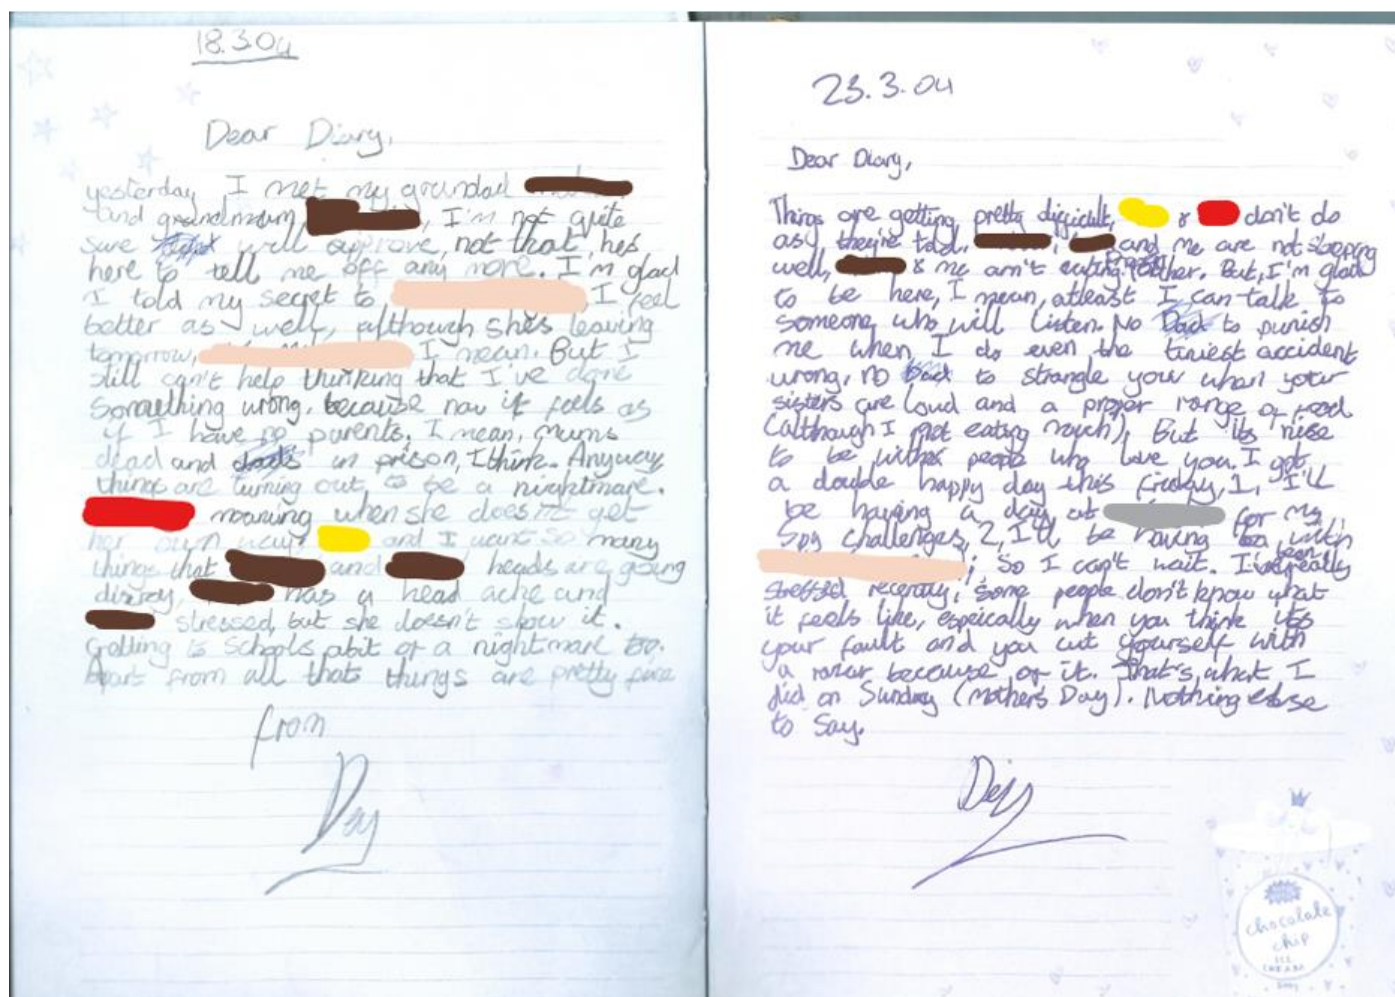 18.3.04
Dear Diary,
yesterday I met my grandad
and grandmum, I'm not quite
sure will approve, not that he's
here to tell me off any more. I'm glad
I told my secret to I feel
better as well, although shes leaving
tomorrow, I mean. But I
still can't help thinking that I've done
something wrong, because now it feels as
if I have no parents. I mean, mums
dead and dads in prison, I think. Anyway
things are turning out to be a nightmare.
moaning when she doesn't get
her own way, and I want so many
things that and heads are going
dizzy, has a head ache and
stressed, but she doesn't show it.
Getting to schools abit of a nightmare too.
Apart from all that things are pretty fine
from
23.3.04
Dear Diary,
Things are getting pretty difficult, & don't do
as they're told. , and me are not sleeping
well, & me ain't eating either. But, I'm glad
to be here, I mean, atleast I can talk to
someone who will listen. No Dad to punish
me when I do even the tiniest accident
wrong, no Dad to strangle you when your
sisters are loud and a proper range of food
(although I not eating much). But its nice
to be with people who love you. I got
a double happy day this friday, 1, I'll
be having a day at for my
Spy challenges, 2, I'll be having with
; So I can't wait. I've been really
stressed recently, some people don't know what
it feels like, especially when you think its
your fault and you cut yourself with
a razor because of it. That's what I
did on Sunday (mothers Day). Nothing else
to say.
chocolate
chip
ICE
CREAM